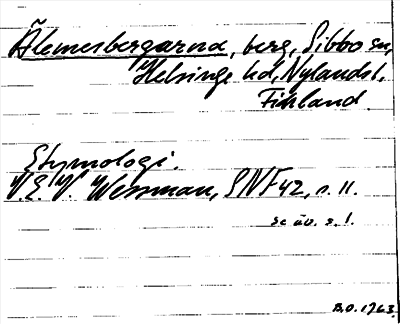 Älemesbergarna, berg, Sibbo sn,
Helsinge hd, Nylands l.
Finland.
Etymologi.
V.E.V. Wessman, SNF 42, s. 11.
se äv. s. 1.
B.O. 1963.